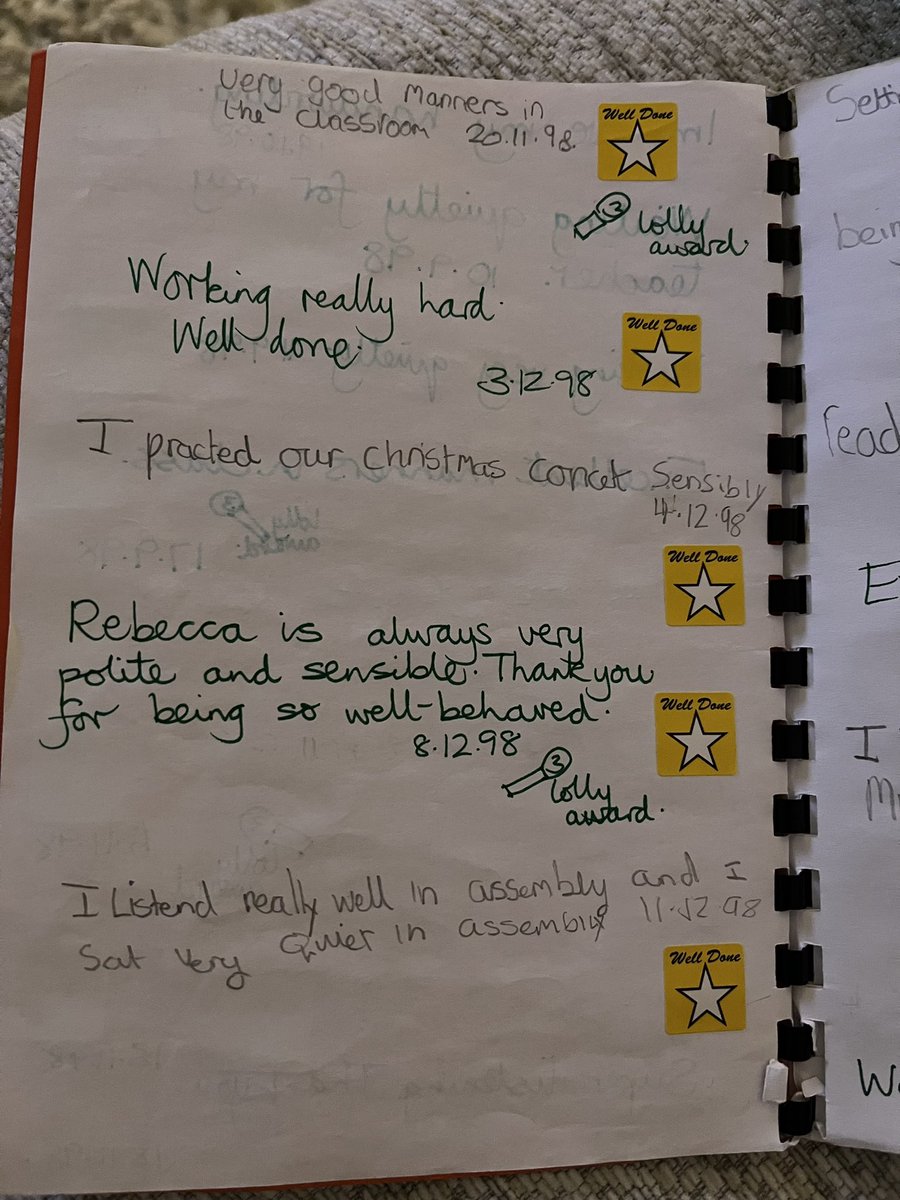 Very good manners in
the classroom 20.11.98.
Well Done
3 lolly
award.
Working really hard.
Well done.
Well Done
3.12.98
I practed our Christmas concet Sensibly
4.12.98
Well Done
Rebecca is always very
polite and sensible. Thankyou
for being so well-behaved.
Well Done
8.12.98
3
lolly
award.
I Listend really well in assembly and I
Sat very Quiet in assembly 11.12.98
Well Done
Setti
bein
read
E
I
M
W